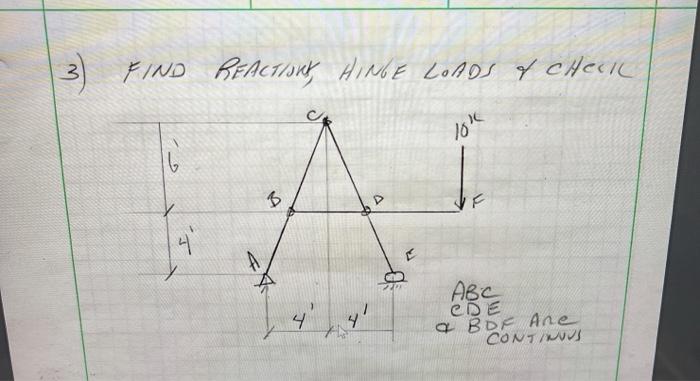 3) FIND REACTIONS, HINGE LOADS & CHECK
C
10ᵏ
6'
B
D
F
4'
A
E
4' 4'
ABC
CDE
& BDF ARE
CONTINUUS